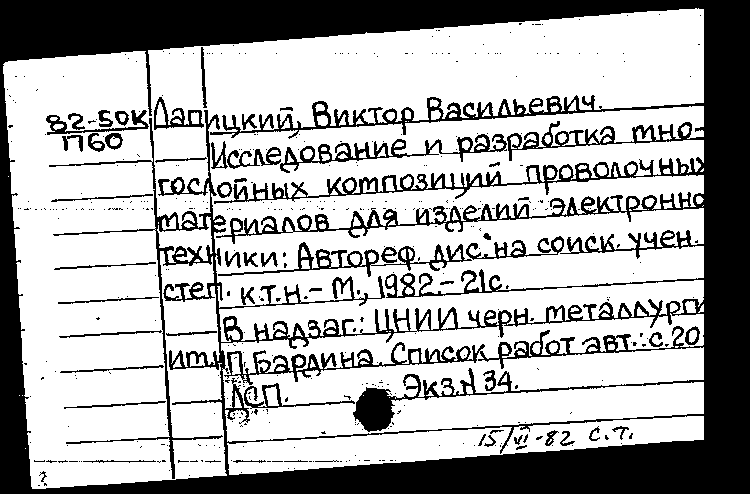 82-50К Лапицкий, Виктор Васильевич.
П60
Исследование и разработка мно-
гослойных композиций проволочных
материалов для изделий электронно
техники: Автореф. дис. на соиск. учен.
степ. к.т.н. - М., 1982. - 21с.
В надзаг.: ЦНИИ черн. металлурги
им. И.П. Бардина. Список работ авт.: с. 20-
ДСП. Экз. N 34.
15/VI-82 С.Т.